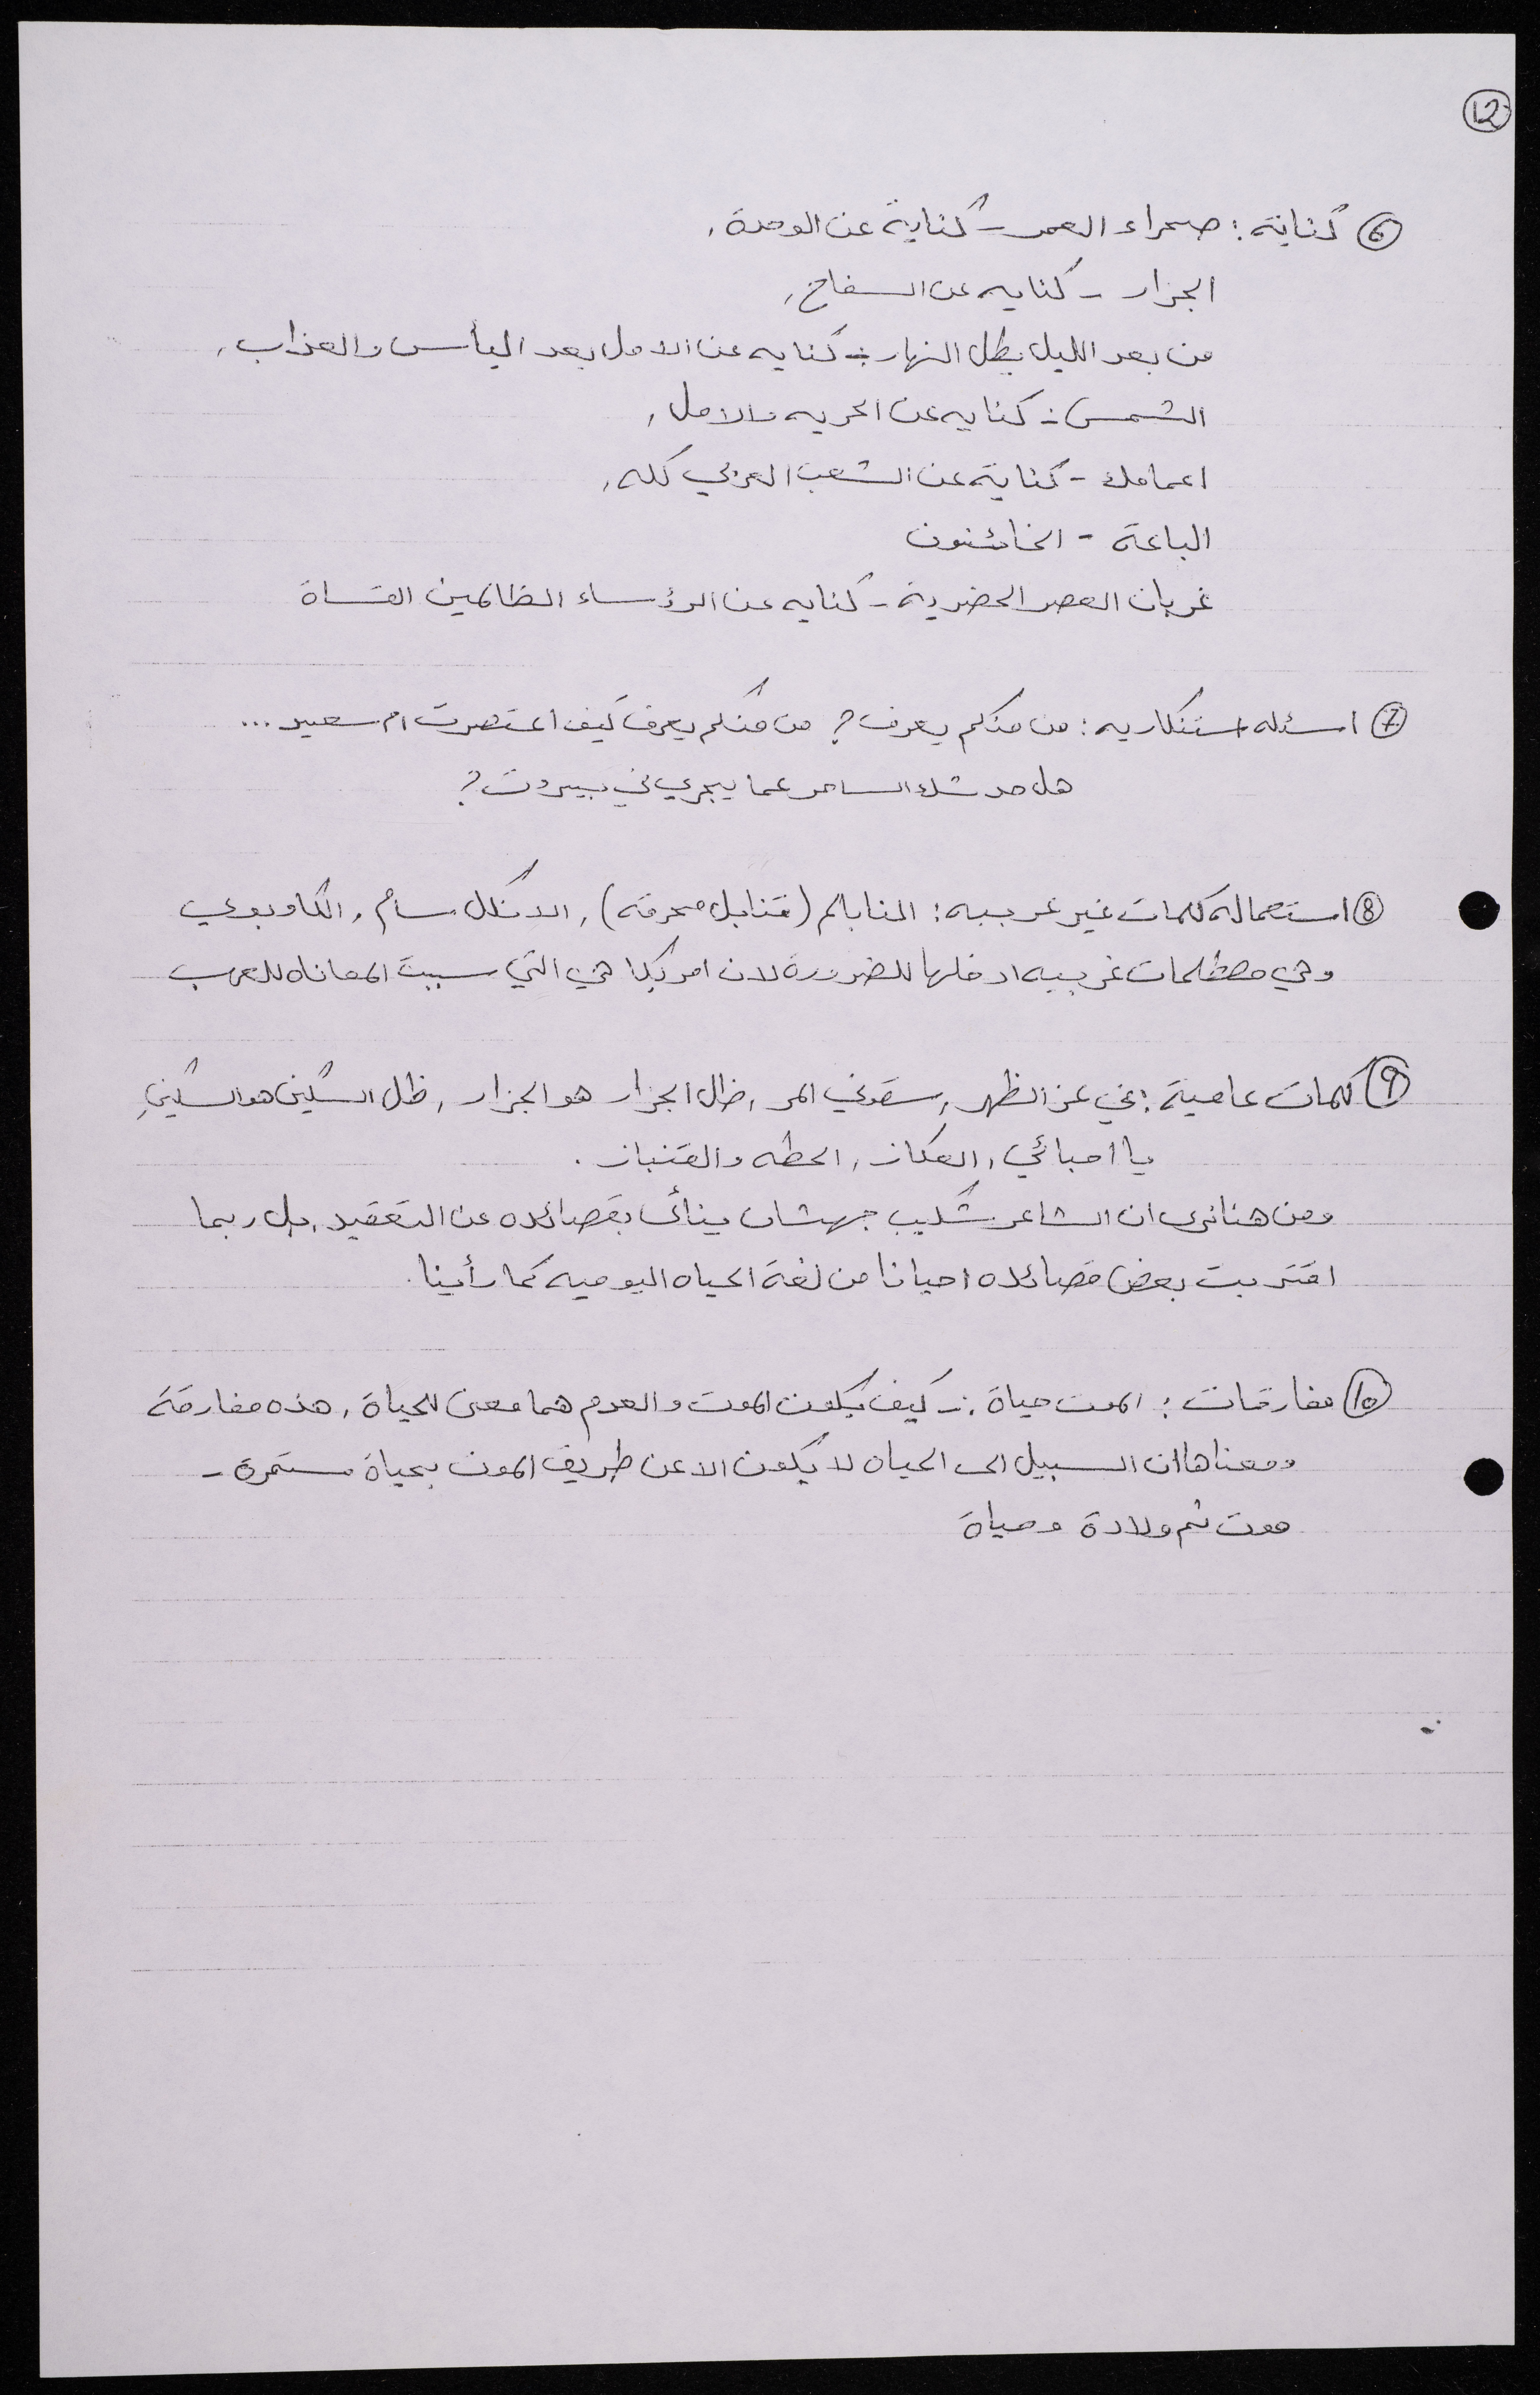 12
6 كناية: صحراء العمر - كناية عن الوحدة,
الجزار - كنايه عن السفاح,
من بعد الليل يطل النهار - كنايه عن الامل بعد اليأس والعذاب,
الشمس - كنايه عن الحريه والامل,
اعمامك - كناية عن الشعب العربي كله,
الباعة - الخائنون
غربان العصر الحضرية - كنايه عن الرؤساء الظالمين القساة
7 اسئله استنكاريه: من منكم يعرف؟ من منكم يعرف كيف اعتصرت ام سعيد...
هل حدثك السامر عما يجري في بيروت؟
8 استعماله كلمات غير عربيه: النابالم (قنابل محرقه), الانكل سام, الكاوبوي
وهي مصطلحات غربيه ادخلها للضرورة لان امريكا هي التي سببت المعاناه للعرب
9 كلمات عامية: في عز الظهر, سقوني المر, ظل الجزار هو الجزار, ظل السكين هو السكين
يا احبائي, العكاز, الحطه والقنباز.
ومن هنا نرى ان الشاعر شكيب جهشان ينأى بقصائده عن التعقيد, بل ربما
اقتربت بعض قصائده احيانا من لغة الحياه اليوميه كما رأينا.
10 مفارقات: الموت حياة :- كيف يكون الموت والعدم هما معنى للحياة, هذه مفارقة
ومعناها ان السبيل الى الحياه لا يكون الا عن طريق الموت بحياة مستمرة -
موت ثم ولادة وحياة